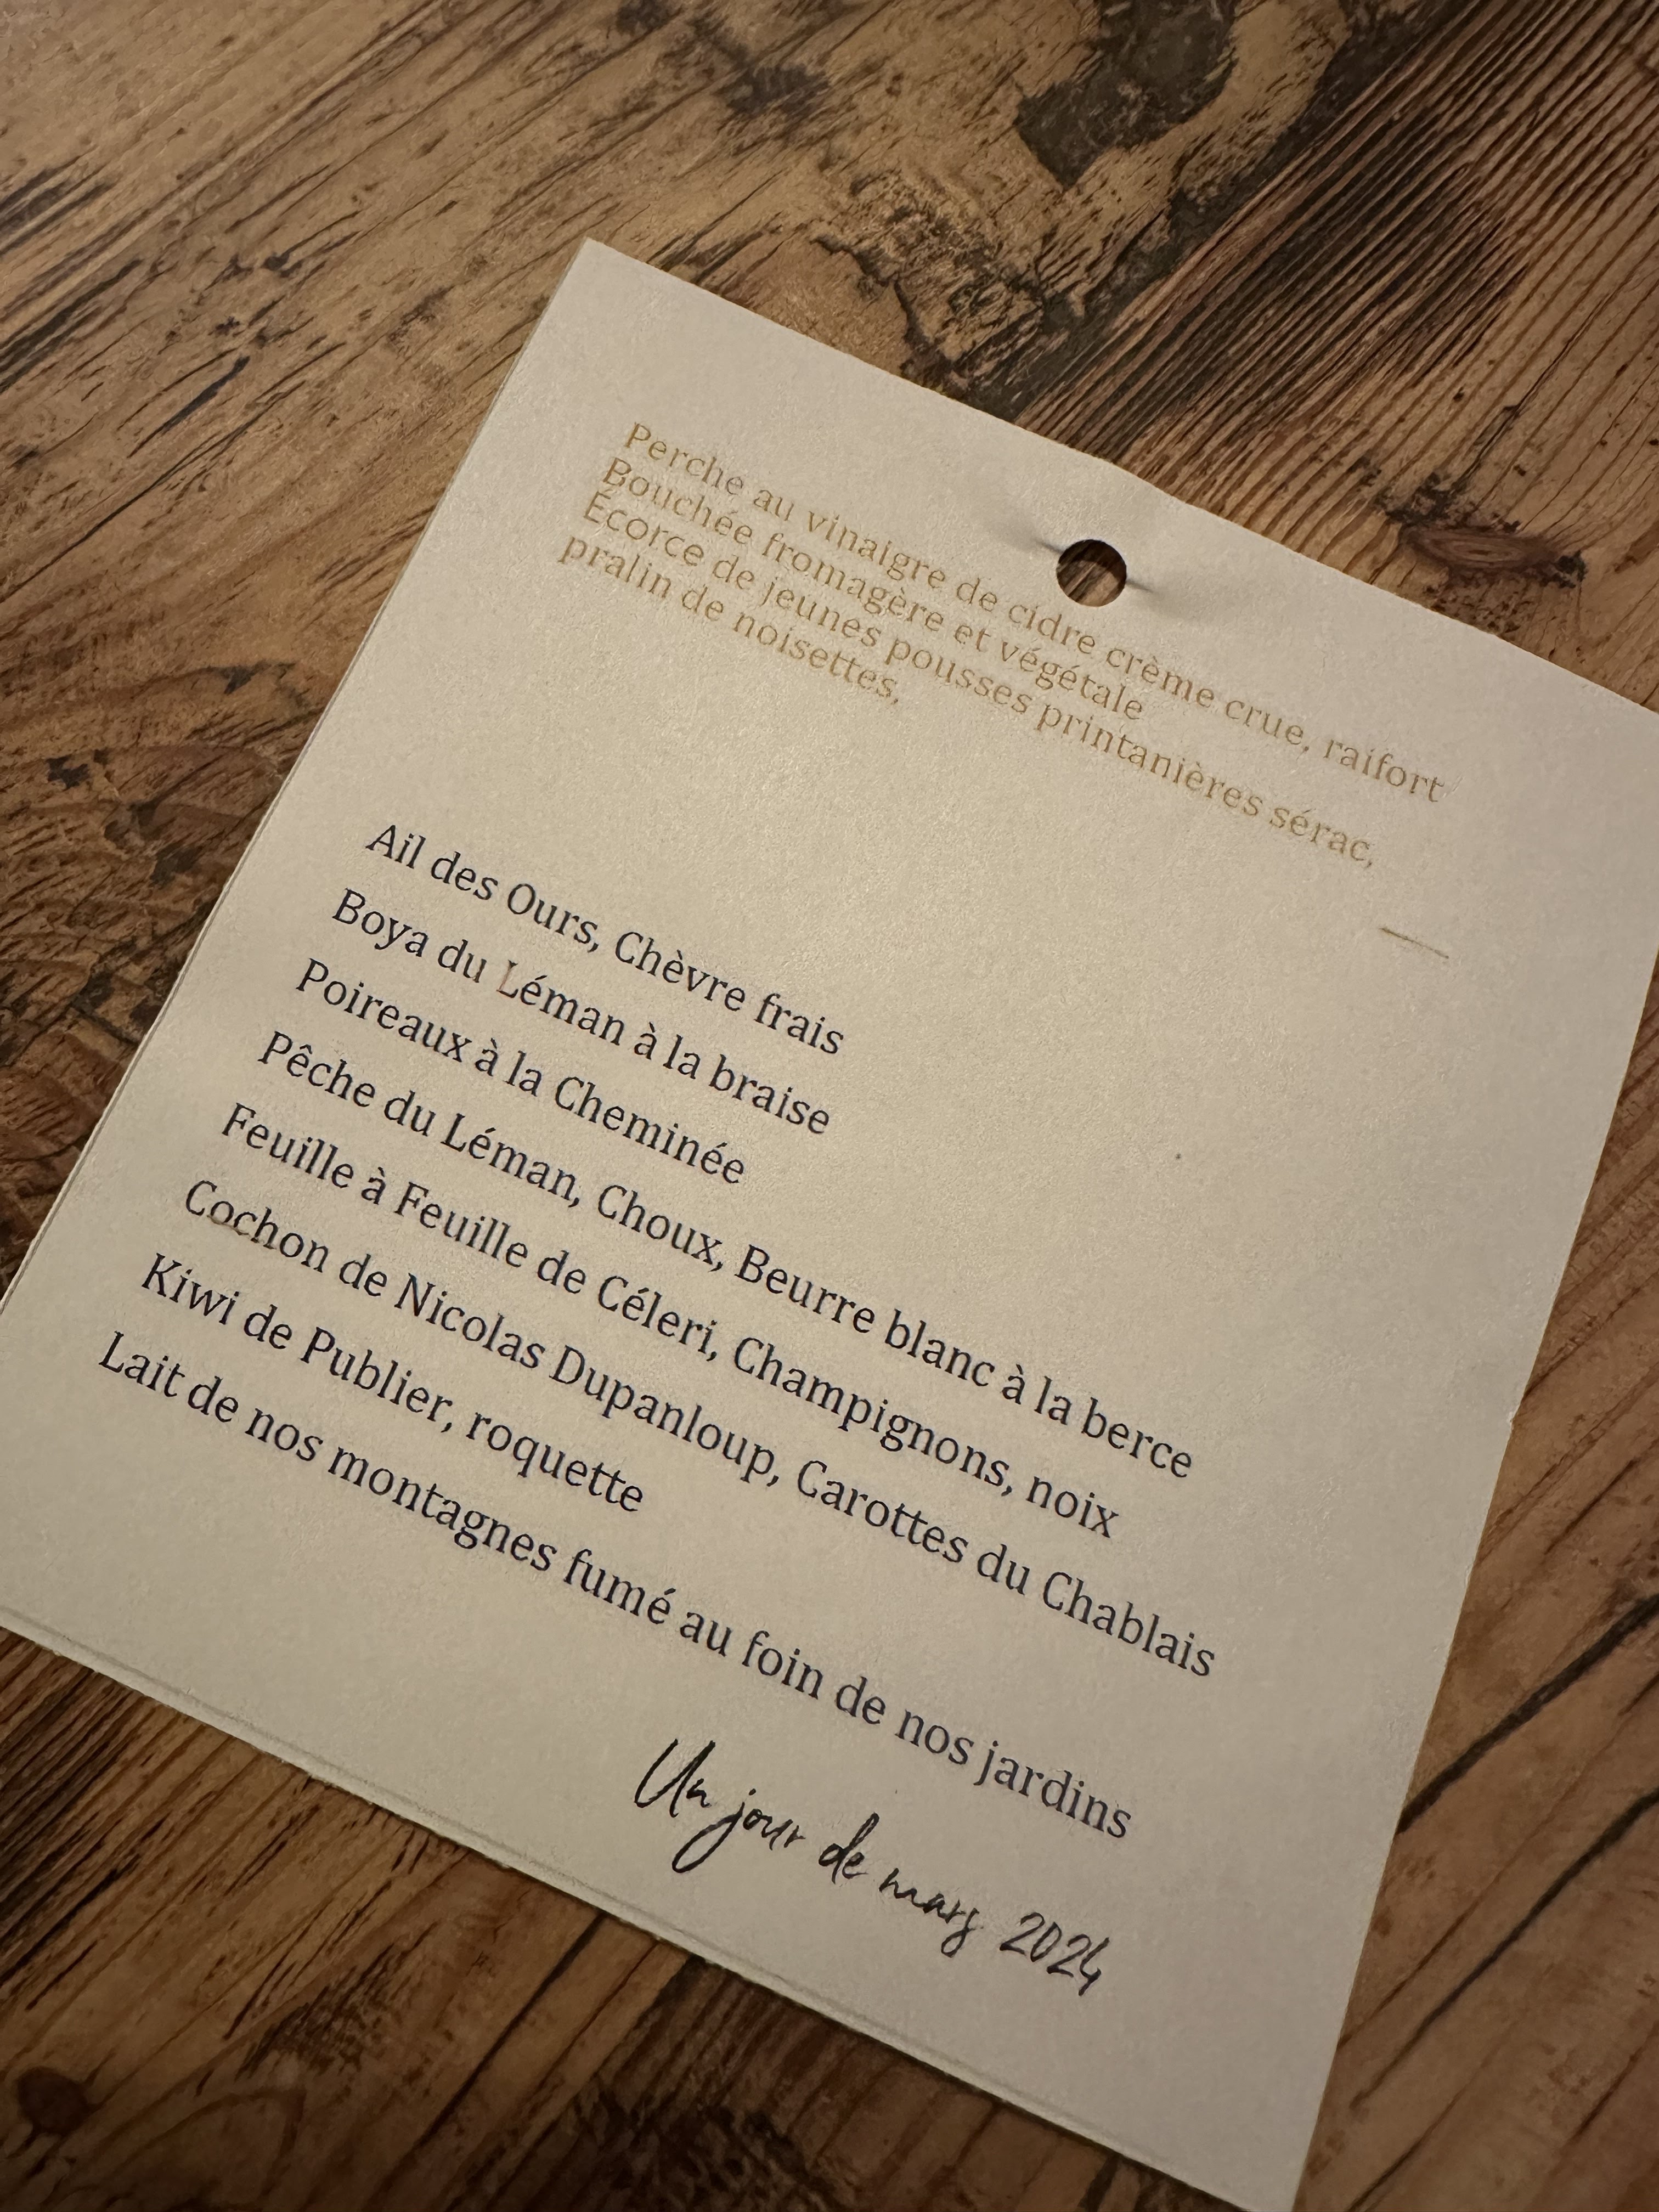 Perche au vinaigre de cidre crème crue, raifort
Bouchée fromagère et végétale
Écorce de jeunes pousses printanières sérac,
pralin de noisettes,
Ail des Ours, Chèvre frais
Boya du Léman à la braise
Poireaux à la Cheminée
Pêche du Léman, Choux, Beurre blanc à la berce
Feuille à Feuille de Céleri, Champignons, noix
Cochon de Nicolas Dupanloup, Carottes du Chablais
Kiwi de Publier, roquette
Lait de nos montagnes fumé au foin de nos jardins
Un jour de mars 2024